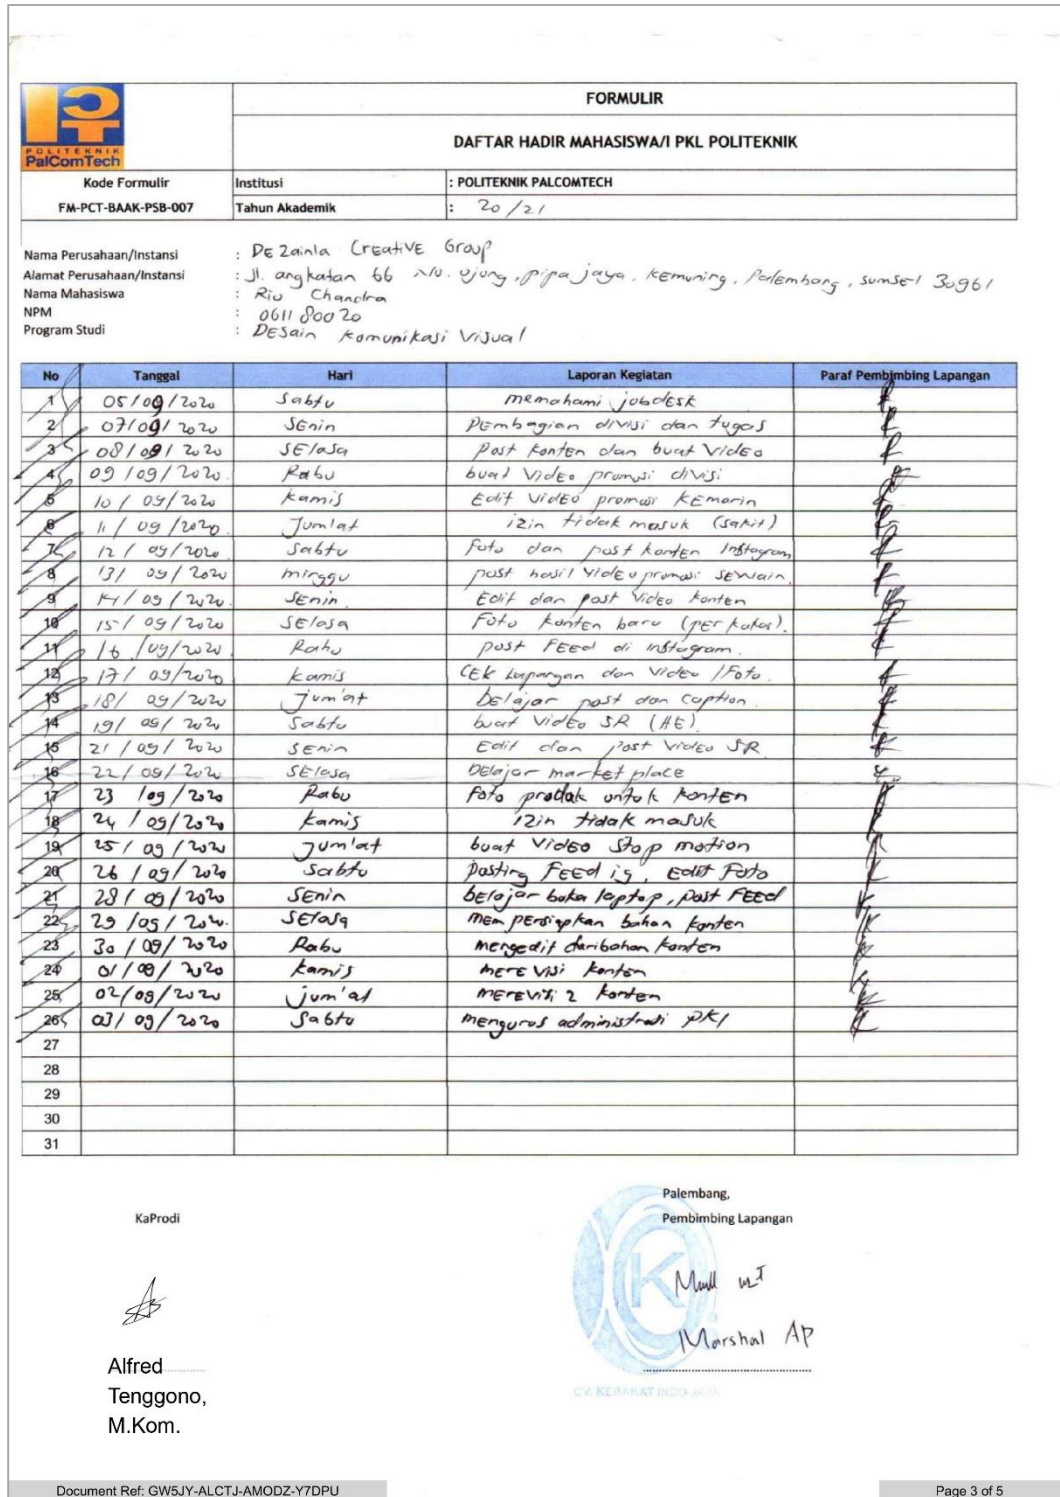 FORMULIR
DAFTAR HADIR MAHASISWA/I PKL POLITEKNIK
POLITEKNIK
PalComTech
Kode Formulir Institusi : POLITEKNIK PALCOMTECH
FM-PCT-BAAK-PSB-007 Tahun Akademik : 20/21
Nama Perusahaan/Instansi : DEZainla CreatiVE Group
Alamat Perusahaan/Instansi : Jl. angkatan 66 ujung, pipa jaya, kemuning, Palembang, sumsel 30961
Nama Mahasiswa : Rio Chandra
NPM : 061180020
Program Studi : DESain komunikasi Visual
No Tanggal Hari Laporan Kegiatan Paraf Pembimbing Lapangan
1 05/09/2020 Sabtu memahami jobdesk
2 07/09/2020 SEnin PEmbagian divisi dan tugas
3 08/09/2020 SElasa Post konten dan buat VidEo
4 09/09/2020 Rabu buat VidEo promosi divisi
5 10/09/2020 kamis Edit VidEo promosi kEmarin
6 11/09/2020 Jum'at izin tidak masuk (sakit)
7 12/09/2020 Sabtu foto dan post kontEn Instagram
8 13/09/2020 minggu post hasil VidEo promosi
9 14/09/2020 SEnin Edit dan post Video konten
10 15/09/2020 SElasa Foto kontEn baru
11 16/09/2020 Rabu post FEEd di instagram.
12 17/09/2020 kamis CEk Lapangan dan Video/Foto.
13 18/09/2020 Jum'at bElajar post dan caption.
14 19/09/2020 Sabtu buat VidEo SR (AE).
15 21/09/2020 SEnin Edit dan post Video SR
16 22/09/2020 SElasa bElajar market place
17 23/09/2020 Rabu foto prodak untuk kontEn
18 24/09/2020 kamis izin tidak masuk
19 25/09/2020 Jum'at buat VidEo Stop motion
20 26/09/2020 Sabtu posting FEEd ig, Edit Foto
21 28/09/2020 SEnin bElajar buka laptop, Post FEEd
22 29/09/2020. SElasa mempersiapkan bahan konten
23 30/09/2020 Rabu mengedit dari bahan konten
24 01/09/2020 kamis mErEVisi konten
25 02/09/2020 jum'at mErEVisi 2 konten
26 03/09/2020 Sabtu mengurus administrasi PKl
27
28
29
30
31
Palembang,
KaProdi Pembimbing Lapangan
Marshal AP
Alfred
Tenggono,
M.Kom.
CV. KERABAT INDO JAYA
Document Ref: GW5JY-ALCTJ-AMODZ-Y7DPU Page 3 of 5